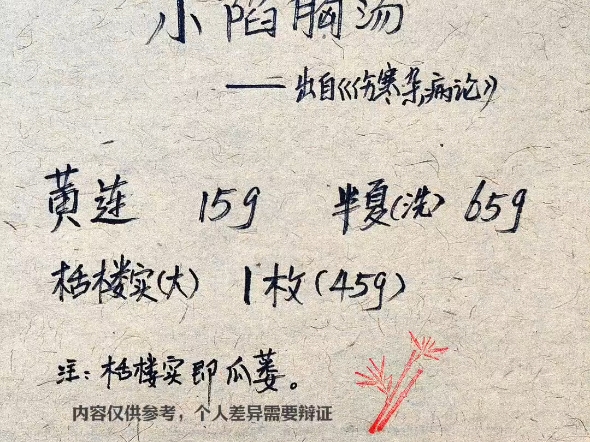 小陷胸汤
——出自《伤寒杂病论》
黄连 15g 半夏(洗) 65g
栝楼实(大) 1枚(45g)
注:栝楼实即瓜蒌。
内容仅供参考，个人差异需要辩证